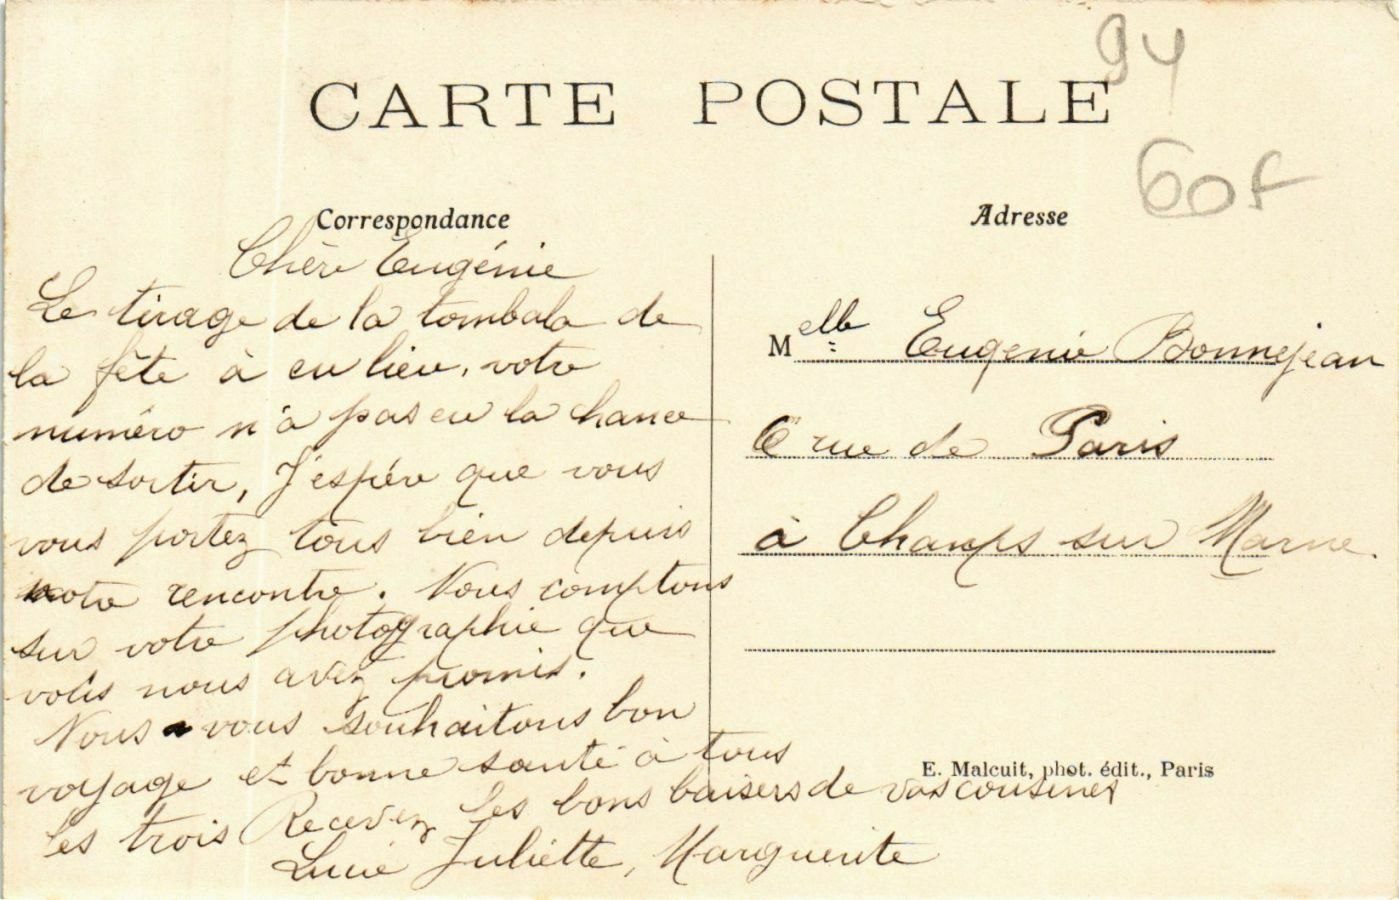 94
CARTE POSTALE
60f
Correspondance
Chère Eugénie
Le tirage de la tombala de
la fête à eu lieu, votre
numéro n'a pas eu la chance
de sortir, J'espère que vous
vous portez tous bien depuis
notre rencontre. Nous comptons
sur votre photographie que
vous nous avez promis.
Nous vous souhaitons bon
voyage et bonne santé à tous
les trois Recevez les bons baisers de vos cousines
Lucie Juliette, Marguerite
Adresse
Melle Eugenie Bonnejean
6 rue de Paris
à Champs sur Marne.
E. Malcuit, phot. édit., Paris